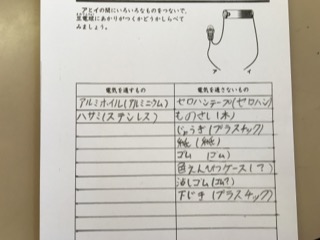 アとイの間にいろいろなものをつないで、
豆電球にあかりがつくかどうかしらべて
みましょう。
ア イ
電気を通すもの 電気を通さないもの
アルミホイル(アルミニウム) セロハンテープ(セロハン)
ハサミ(ステンレス) ものさし(木)
じょうぎ(プラスチック)
紙(紙)
ゴム(ゴム)
色えんぴつケース(?)
消しゴム(ゴム?)
下じき(プラスチック)